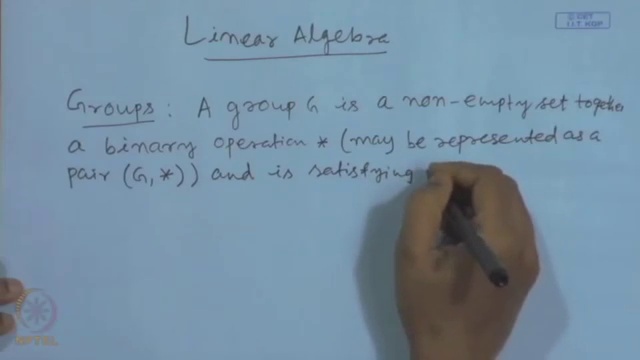 © CET
I.I.T. KGP
Linear Algebra
Groups : A group G is a non-empty set together
a binary operation * (may be represented as a
pair (G, *)) and is satisfying
NPTEL